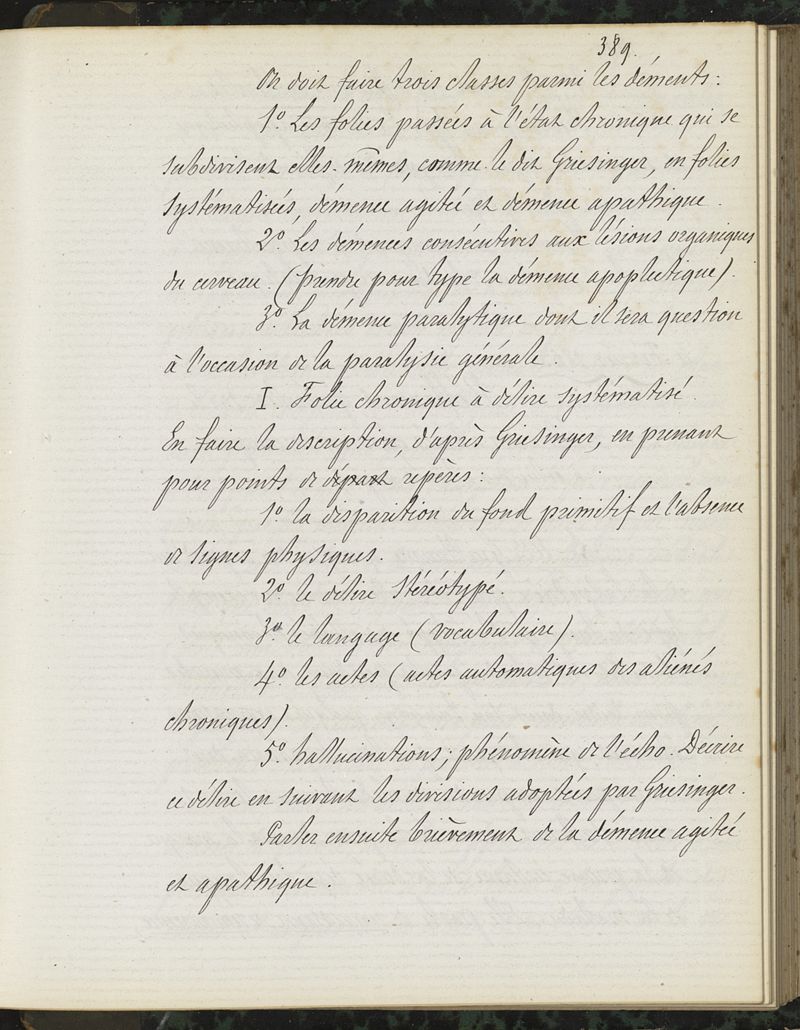 389.
On doit faire trois classes parmi les déments :
1º. Les folies passées à l'état chronique qui se
subdivisent elles-mêmes, comme le dit Griesinger, en folies
systématisées, démence agitée et démence apathique.
2º. Les démences consécutives aux lésions organiques
du cerveau. (prendre pour type la démence apoplectique).
3º. La démence paralytique dont il sera question
à l'occasion de la paralysie générale.
I. Folie chronique à délire systématisé.
En faire la description, d'après Griesinger, en prenant
pour points de départ repères :
1º. la disparition du fond primitif et l'absence
de signes physiques.
2º. le délire stéréotypé.
3º. le langage (vocabulaire).
4º. les actes (actes automatiques des aliénés
chroniques).
5º. hallucinations ; phénomène de l'écho. Décrire
ce délire en suivant les divisions adoptées par Griesinger.
Parler ensuite brièvement de la démence agitée
et apathique.